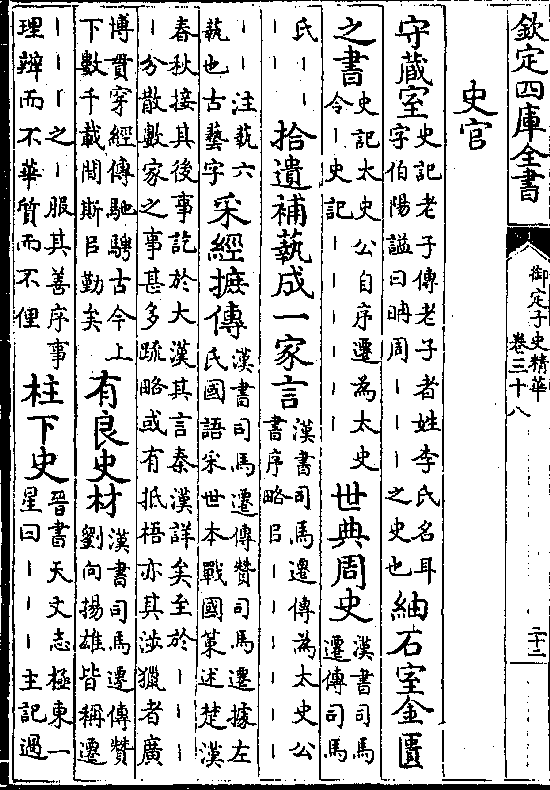 欽定四庫全書
御定子史精華
卷三十八
二十二
史官
守藏室
史記老子傳老子者姓李氏名耳
字伯陽諡曰聃周丨丨丨之史也
紬石室金匱
之書
史記太史公自序遷為太史
令丨史記丨丨丨丨丨
世典周史
漢書司馬
遷傳司馬
氏丨丨
丨丨
拾遺補蓺成一家言
漢書司馬遷傳為太史公
書序略㠯丨丨丨丨丨丨
丨丨注蓺六
蓺也古藝字
采經摭傳
漢書司馬遷傳贊司馬遷據左
氏國語采世本戰國策述楚漢
春秋接其後事訖於大漢其言秦漢詳矣至於丨丨丨
丨分散數家之事甚多疏略或有抵梧亦其涉獵者廣
博貫穿經傳馳騁古今上
下數千載間斯㠯勤矣
有良史材
漢書司馬遷傳贊
劉向揚雄皆稱遷
丨丨丨之丨服其善序事
理辨而不華質而不俚
柱下史
晉書天文志極東一
星曰丨丨丨主記過